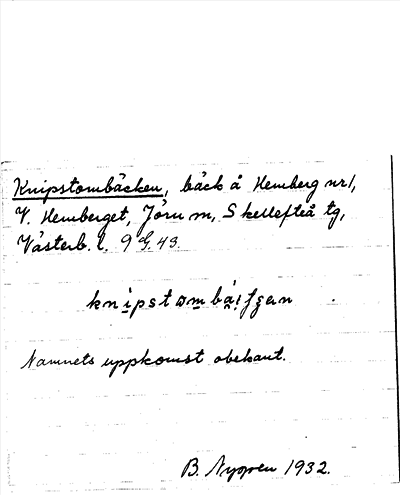 Knipstombäcken, bäck å Hemberg nr 1,
V. Hemberget, Jörn sn, Skellefteå tg,
Västerb. l. 9 G. 43.
Namnets uppkomst obekant.
B. Nyggren 1932.